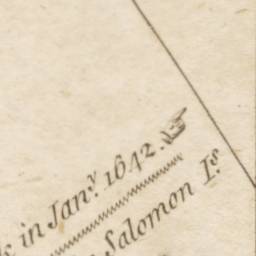 in Jan.y 1642.
Salomon I.s